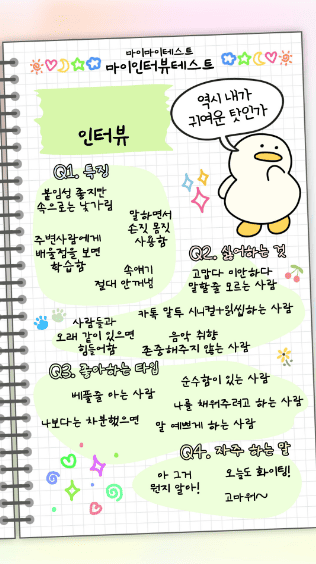 마이마이테스트
마이인터뷰테스트
역시 내가
귀여운 탓인가
인터뷰
Q1. 특징
붙임성 좋지만
속으로는 낯가림
말하면서
손짓 몸짓
사용함
주변사람에게
배울점을 보면
학습함
속얘기
절대 안꺼냄
Q2. 싫어하는 것
고맙다 미안하다
말할줄 모르는 사람
카톡 말투 시니컬+읽씹하는 사람
사람들과
오래 같이 있으면
힘들어함
음악 취향
존중해주지 않는 사람
Q3. 좋아하는 타입
베풀줄 아는 사람
순수함이 있는 사람
나를 채워주려고 하는 사람
나보다는 차분했으면
말 예쁘게 하는 사람
Q4. 자주 하는 말
아 그거
뭔지 알아!
오늘도 화이팅!
고마워~